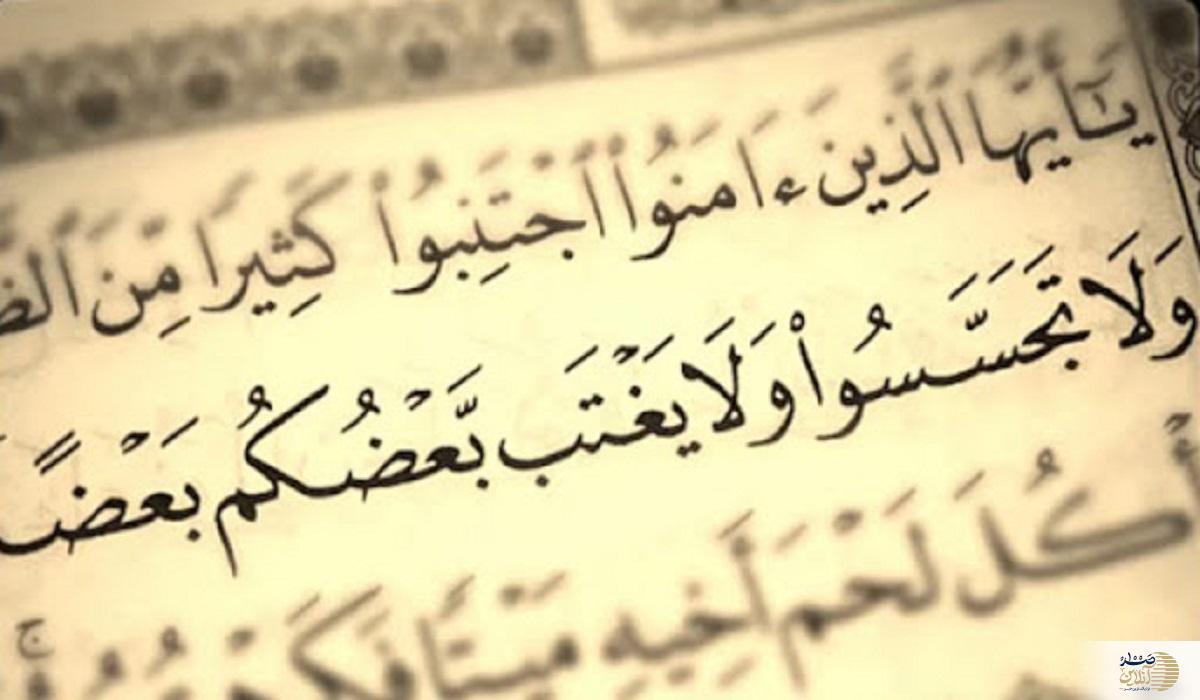 يَـٰٓأَيُّهَا ٱلَّذِينَ ءَامَنُوا۟ ٱجْتَنِبُوا۟ كَثِيرًا مِّنَ
وَلَا تَجَسَّسُوا۟ وَلَا يَغْتَب بَّعْضُكُم بَعْضًا
أُكُلَ لَحْمَ أَخِيهِ مَيْتًا
صدا آنلاین